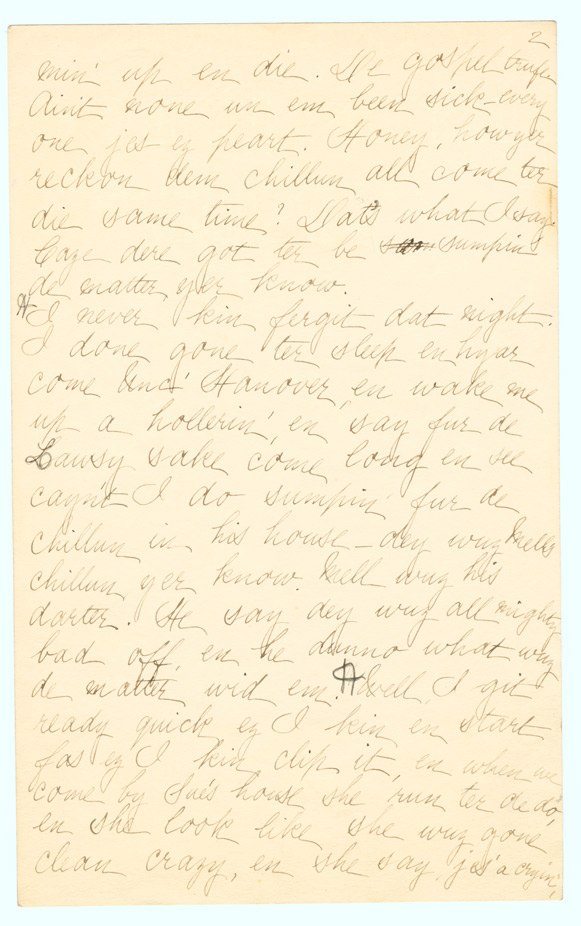 2
min' up en die. De gospel trufe
Ain't none un em been sick - every
one jes ez peart. Honey, how yer
reckon dem chillun all come ter
die same time? Dat's what I say.
Caze dere got ter be sumpin's
de matter yer know.
I never kin fergit dat night.
I done gone ter sleep en hyar
come Unc' Hanover, en wake me
up a hollerin', en say fur de
Lawsy sake come long en see
cayn't I do sumpin' fur de
chillun in his house - dey wuz Mells
chillun yer know. Mell wuz his
darter. He say dey wuz all mighty
bad off, en he dunno what wuz
de matter wid em. Well, I git
ready quick ez I kin en start
fas ez I kin clip it, en when we
come by Sue's house she run ter de do',
en she look like she wuz gone
clean crazy, en she say, jes' a cryin',